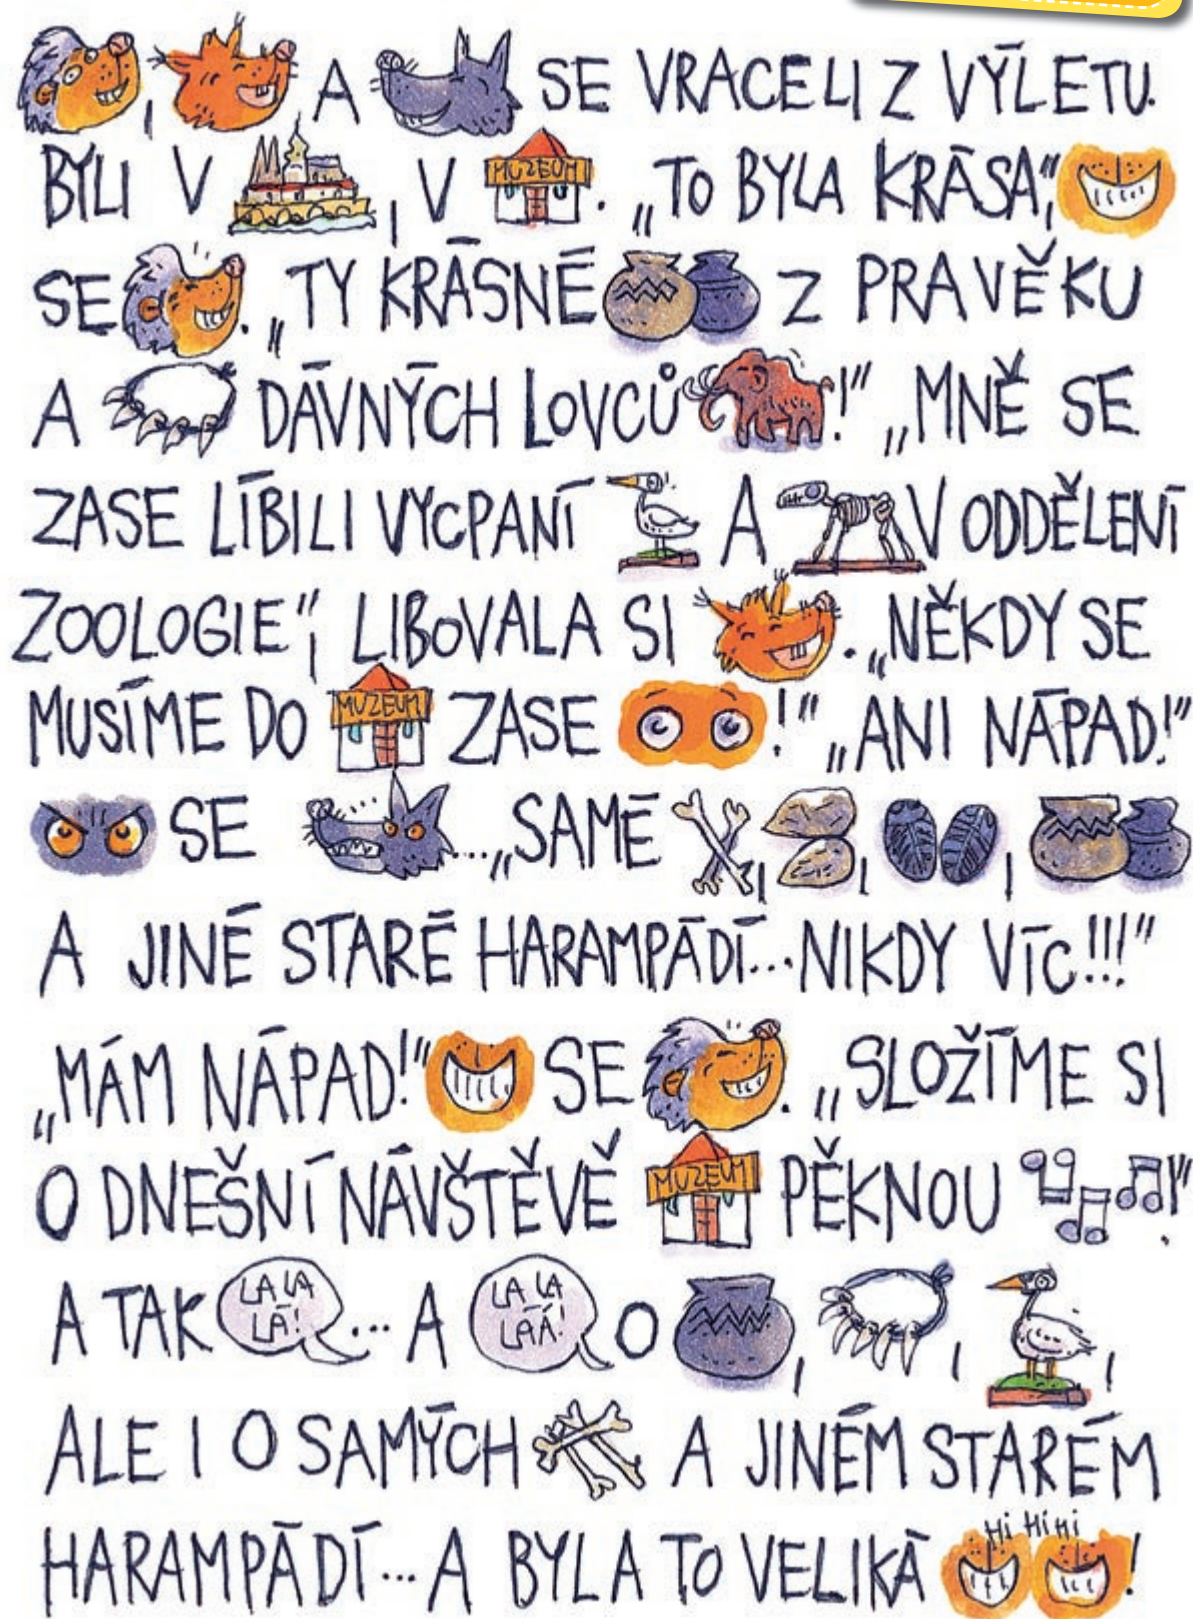 , A SE VRACELI Z VÝLETU.
BYLI V , V MUZEUM. „TO BYLA KRÁSA“,
SE . „TY KRÁSNÉ Z PRAVĚKU
A DÁVNÝCH LOVCŮ !“ „MNĚ SE
ZASE LÍBILI VYCPANÍ A V ODDĚLENÍ
ZOOLOGIE“, LIBOVALA SI . „NĚKDY SE
MUSÍME DO MUZEUM ZASE !“ „ANI NÁPAD!“
SE ...„SAMÉ , , ,
A JINÉ STARÉ HARAMPÁDÍ...NIKDY VÍC!!!“
„MÁM NÁPAD!“ SE . „SLOŽÍME SI
O DNEŠNÍ NÁVŠTĚVĚ MUZEUM PĚKNOU !“
A TAK LA LA LÁ! ... A LA LA LAÁ! O , , ,
ALE I O SAMÝCH A JINÉM STARÉM
HARAMPÁDÍ...A BYLA TO VELIKÁ HI HI HI !